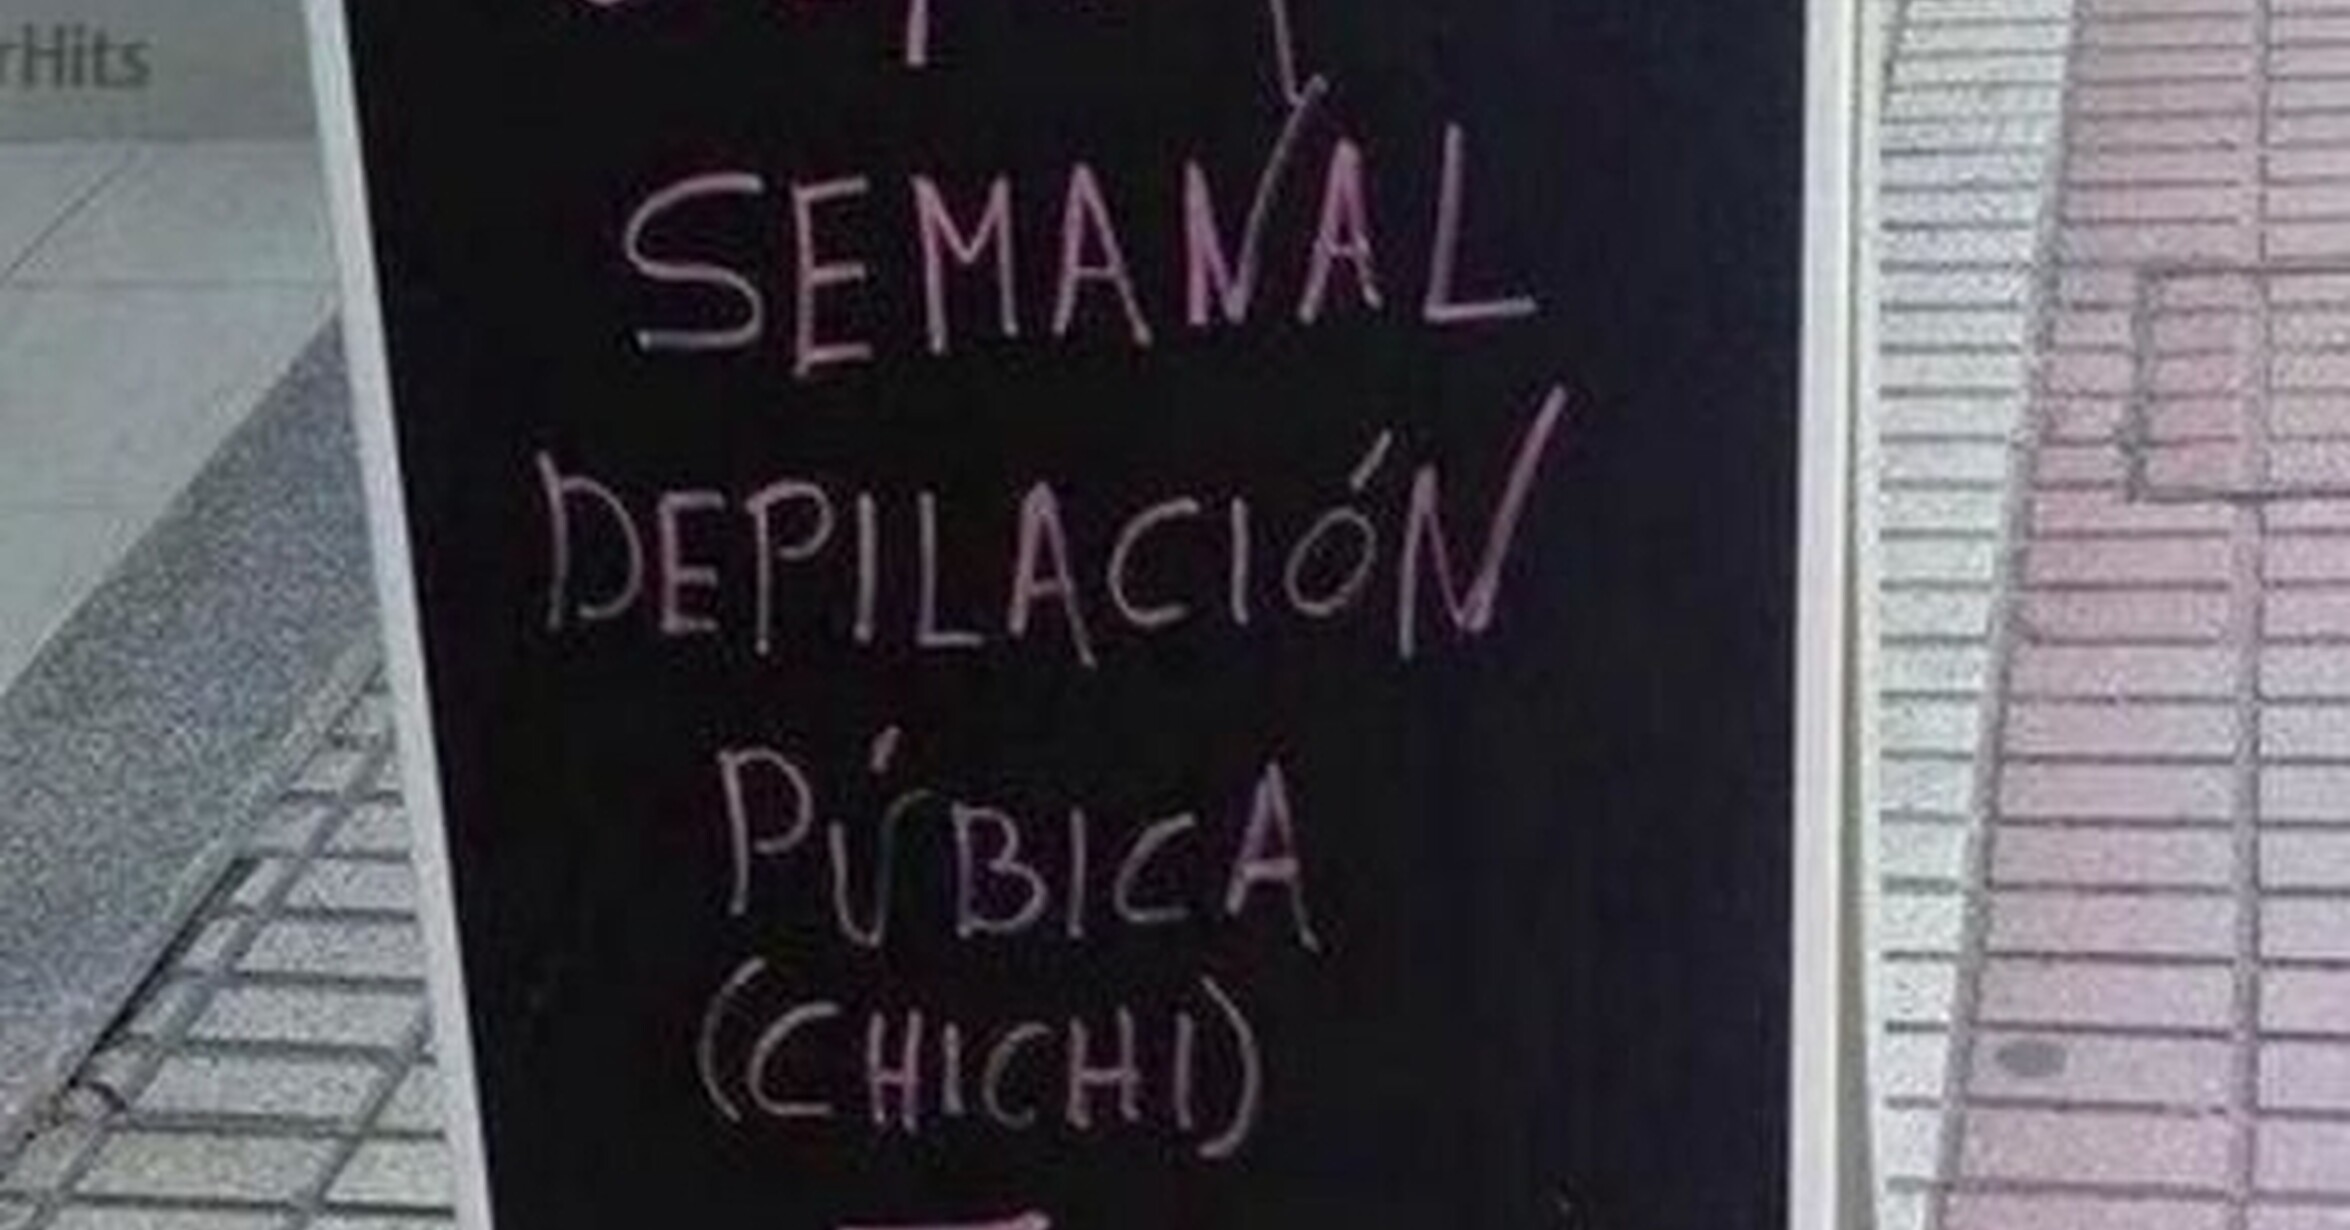 rHits
SEMANAL
DEPILACIÓN
PÚBICA
(CHICHI)